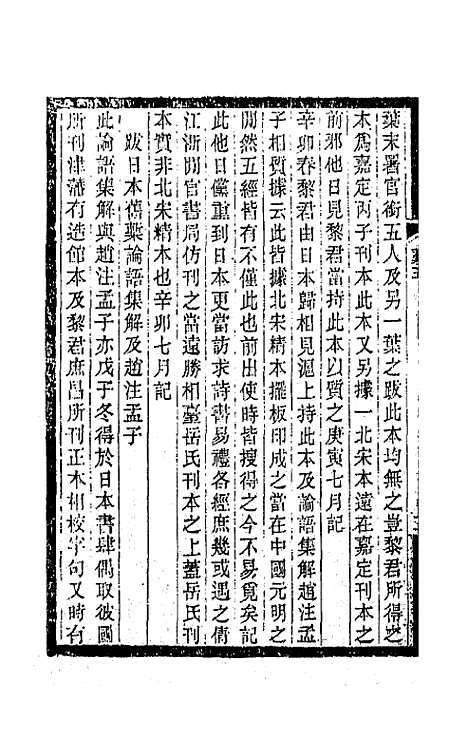 葉末署官銜五人及另一葉之跋此本均無之豈黎君所得之
本爲嘉定丙子刊本此本又另據一北宋本遠在嘉定刊本之
前邪他日見黎君當持此本以質之庚寅七月記
辛卯春黎君由日本歸相見滬上持此本及論語集解趙注孟
子相質據云此皆據北宋精本擺板印成之當在中國元明之
閒然五經皆有不僅此也前出使時皆搜得之今不易覓矣記
此他日儻重到日本更當訪求詩書易禮各經庶幾或遇之倩
江浙閒官書局仿刊之當遠勝相臺岳氏刊本之上蓋岳氏刊
本實非北宋精本也辛卯七月記
跋日本舊槧論語集解及趙注孟子
此論語集解與趙注孟子亦戊子冬得於日本書肆偶取彼國
所刊津藩有造館本及黎君庶昌所刊正本相校字句又時有